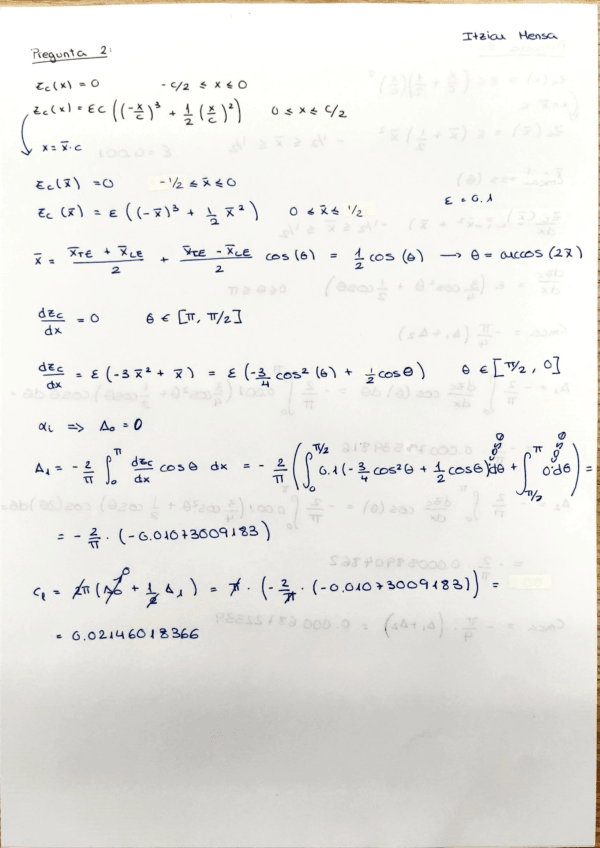 Itziar Mensa
Pregunta 2:
z_c(x) = 0    -c/2 ≤ x ≤ 0
z_c(x) = εc ((-x/c)³ + 1/2 (x/c)²)    0 ≤ x ≤ c/2
x = x̄·c
z_c(x̄) = 0    -1/2 ≤ x̄ ≤ 0
z_c(x̄) = ε((-x̄)³ + 1/2 x̄²)    0 ≤ x̄ ≤ 1/2    ε = 0.1
x̄ = (x̄_TE + x̄_LE)/2 + (x̄_TE - x̄_LE)/2 cos(θ) = 1/2 cos(θ) → θ = arccos(2x̄)
dz_c/dx = 0    θ ∈ [π, π/2]
dz_c/dx = ε(-3x̄² + x̄) = ε(-3/4 cos²(θ) + 1/2 cosθ)    θ ∈ [π/2, 0]
α_i ⇒ A₀ = 0
A₁ = -2/π ∫₀^π dz_c/dx cosθ dx = -2/π (∫₀^{π/2} 0.1(-3/4 cos²θ + 1/2 cosθ) cosθ dθ + ∫_{π/2}^π 0 cosθ dθ) =
= -2/π · (-0.01073009183)
c_l = 2π(A₀ + 1/2 A₁) = π · (-2/π · (-0.01073009183)) =
= 0.02146018366